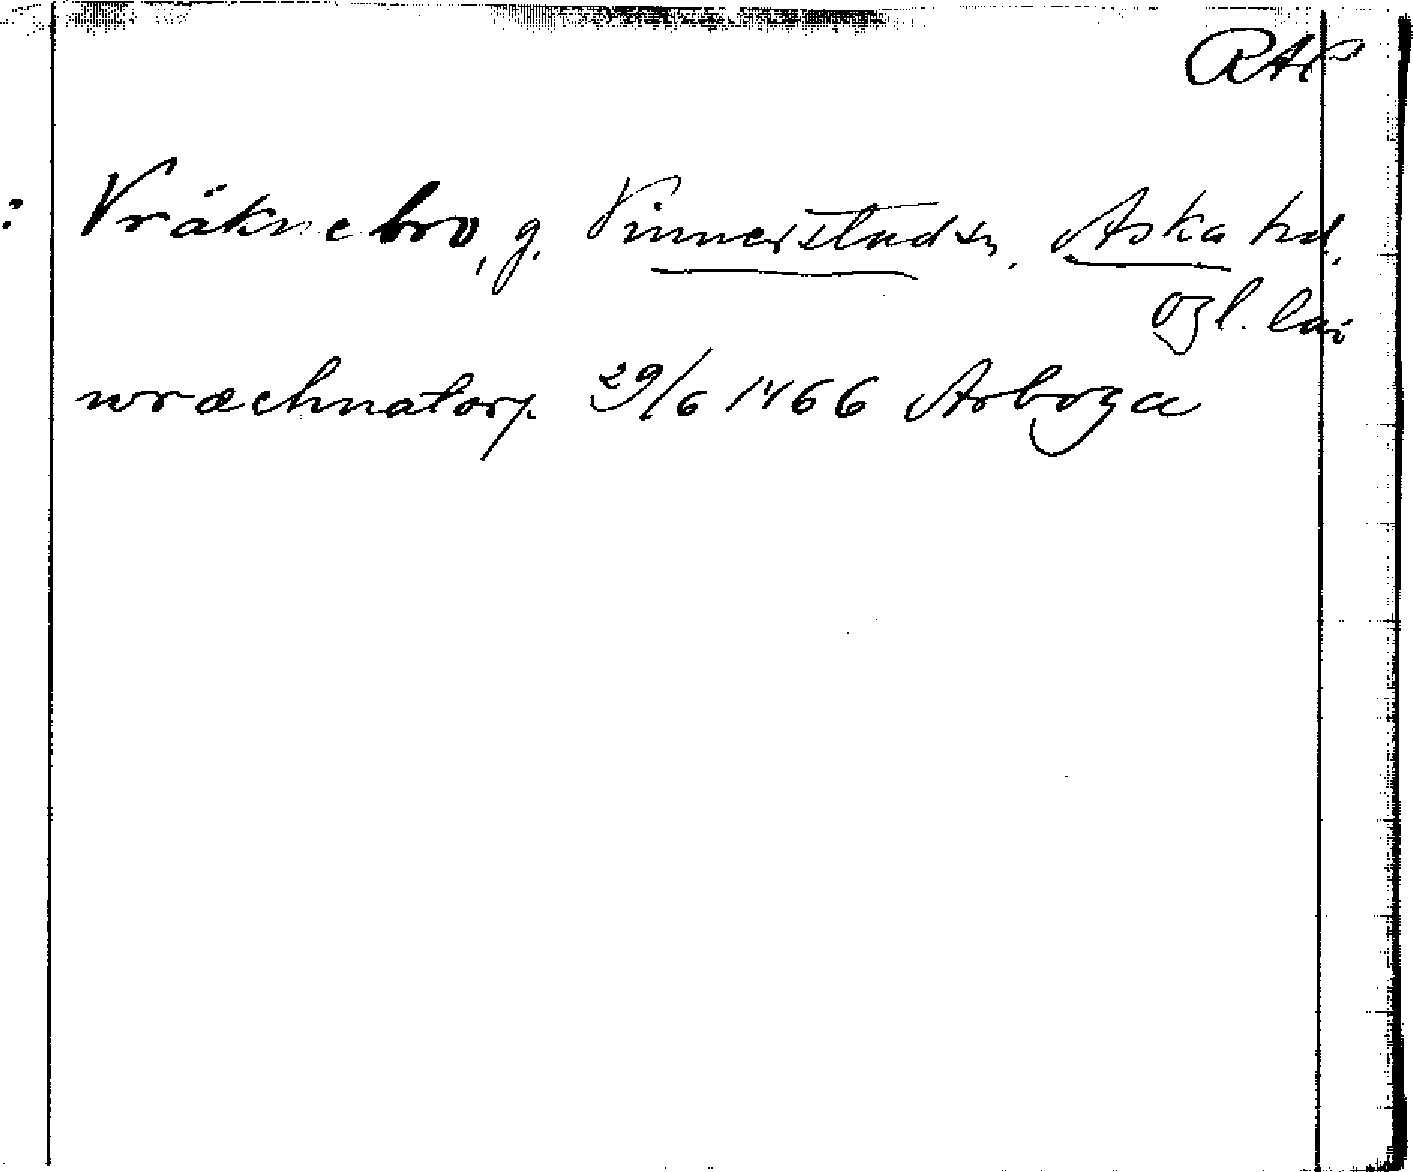 RAP
: Vräknebro, g. Vinnerstads sn, Aska hd,
Ögl. län
wræchnatorp 29/6 1466 Arboga